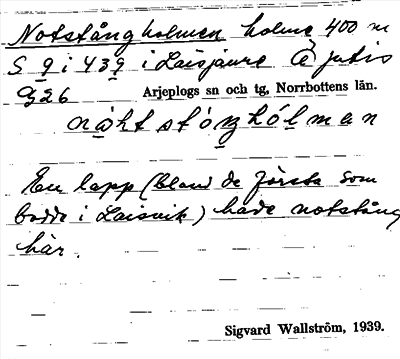 Notstångholmen holme 400 m
S 9 i 439 i Laisjaure Ä jutis
G26 Arjeplogs sn och tg, Norrbottens län.
nákt stóŋ hólmen
En lapp (bland de första som
bodde i Laisvik) hade notstång
här.
Sigvard Wallström, 1939.